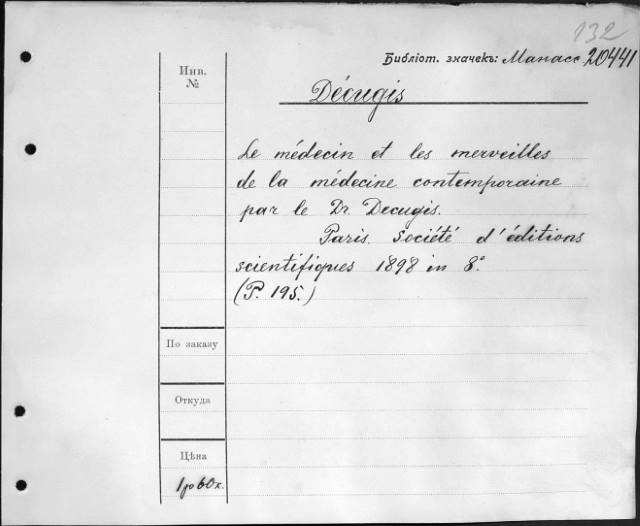 132
Библіот. значекъ: Манасс 20441
Инв.
№
Décugis
Le médecin et les merveilles
de la médecine contemporaine
par le Dr. Decugis.
Paris. Société d'éditions
scientifiques 1898 in 8°.
(P. 195.)
По заказу
Откуда
Цѣна
1 р 60 к.